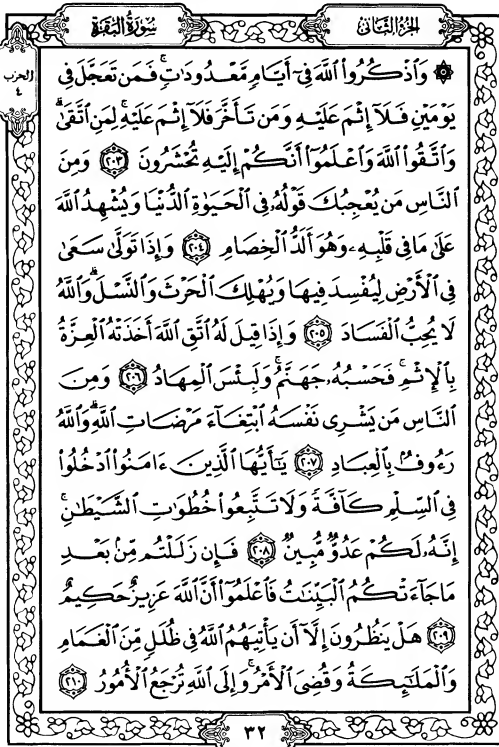 سورة البقرة
الجزء الثاني
الحزب
٤
۞ وَاذْكُرُوا اللَّهَ فِي أَيَّامٍ مَعْدُودَاتٍ فَمَن تَعَجَّلَ فِي
يَوْمَيْنِ فَلَا إِثْمَ عَلَيْهِ وَمَن تَأَخَّرَ فَلَا إِثْمَ عَلَيْهِ لِمَنِ اتَّقَىٰ
وَاتَّقُوا اللَّهَ وَاعْلَمُوا أَنَّكُمْ إِلَيْهِ تُحْشَرُونَ ﴿٢٠٣﴾ وَمِنَ
النَّاسِ مَن يُعْجِبُكَ قَوْلُهُ فِي الْحَيَوٰةِ الدُّنْيَا وَيُشْهِدُ اللَّهَ
عَلَىٰ مَا فِي قَلْبِهِ وَهُوَ أَلَدُّ الْخِصَامِ ﴿٢٠٤﴾ وَإِذَا تَوَلَّىٰ سَعَىٰ
فِي الْأَرْضِ لِيُفْسِدَ فِيهَا وَيُهْلِكَ الْحَرْثَ وَالنَّسْلَ وَاللَّهُ
لَا يُحِبُّ الْفَسَادَ ﴿٢٠٥﴾ وَإِذَا قِيلَ لَهُ اتَّقِ اللَّهَ أَخَذَتْهُ الْعِزَّةُ
بِالْإِثْمِ فَحَسْبُهُ جَهَنَّمُ وَلَبِئْسَ الْمِهَادُ ﴿٢٠٦﴾ وَمِنَ
النَّاسِ مَن يَشْرِي نَفْسَهُ ابْتِغَاءَ مَرْضَاتِ اللَّهِ وَاللَّهُ
رَءُوفٌ بِالْعِبَادِ ﴿٢٠٧﴾ يَٰأَيُّهَا الَّذِينَ ءَامَنُوا ادْخُلُوا
فِي السِّلْمِ كَافَّةً وَلَا تَتَّبِعُوا خُطُوَٰتِ الشَّيْطَٰنِ
إِنَّهُ لَكُمْ عَدُوٌّ مُّبِينٌ ﴿٢٠٨﴾ فَإِن زَلَلْتُم مِّن بَعْدِ
مَا جَاءَتْكُمُ الْبَيِّنَٰتُ فَاعْلَمُوا أَنَّ اللَّهَ عَزِيزٌ حَكِيمٌ
﴿٢٠٩﴾ هَلْ يَنظُرُونَ إِلَّا أَن يَأْتِيَهُمُ اللَّهُ فِي ظُلَلٍ مِّنَ الْغَمَامِ
وَالْمَلَٰئِكَةُ وَقُضِيَ الْأَمْرُ وَإِلَى اللَّهِ تُرْجَعُ الْأُمُورُ ﴿٢١٠﴾
٣٢